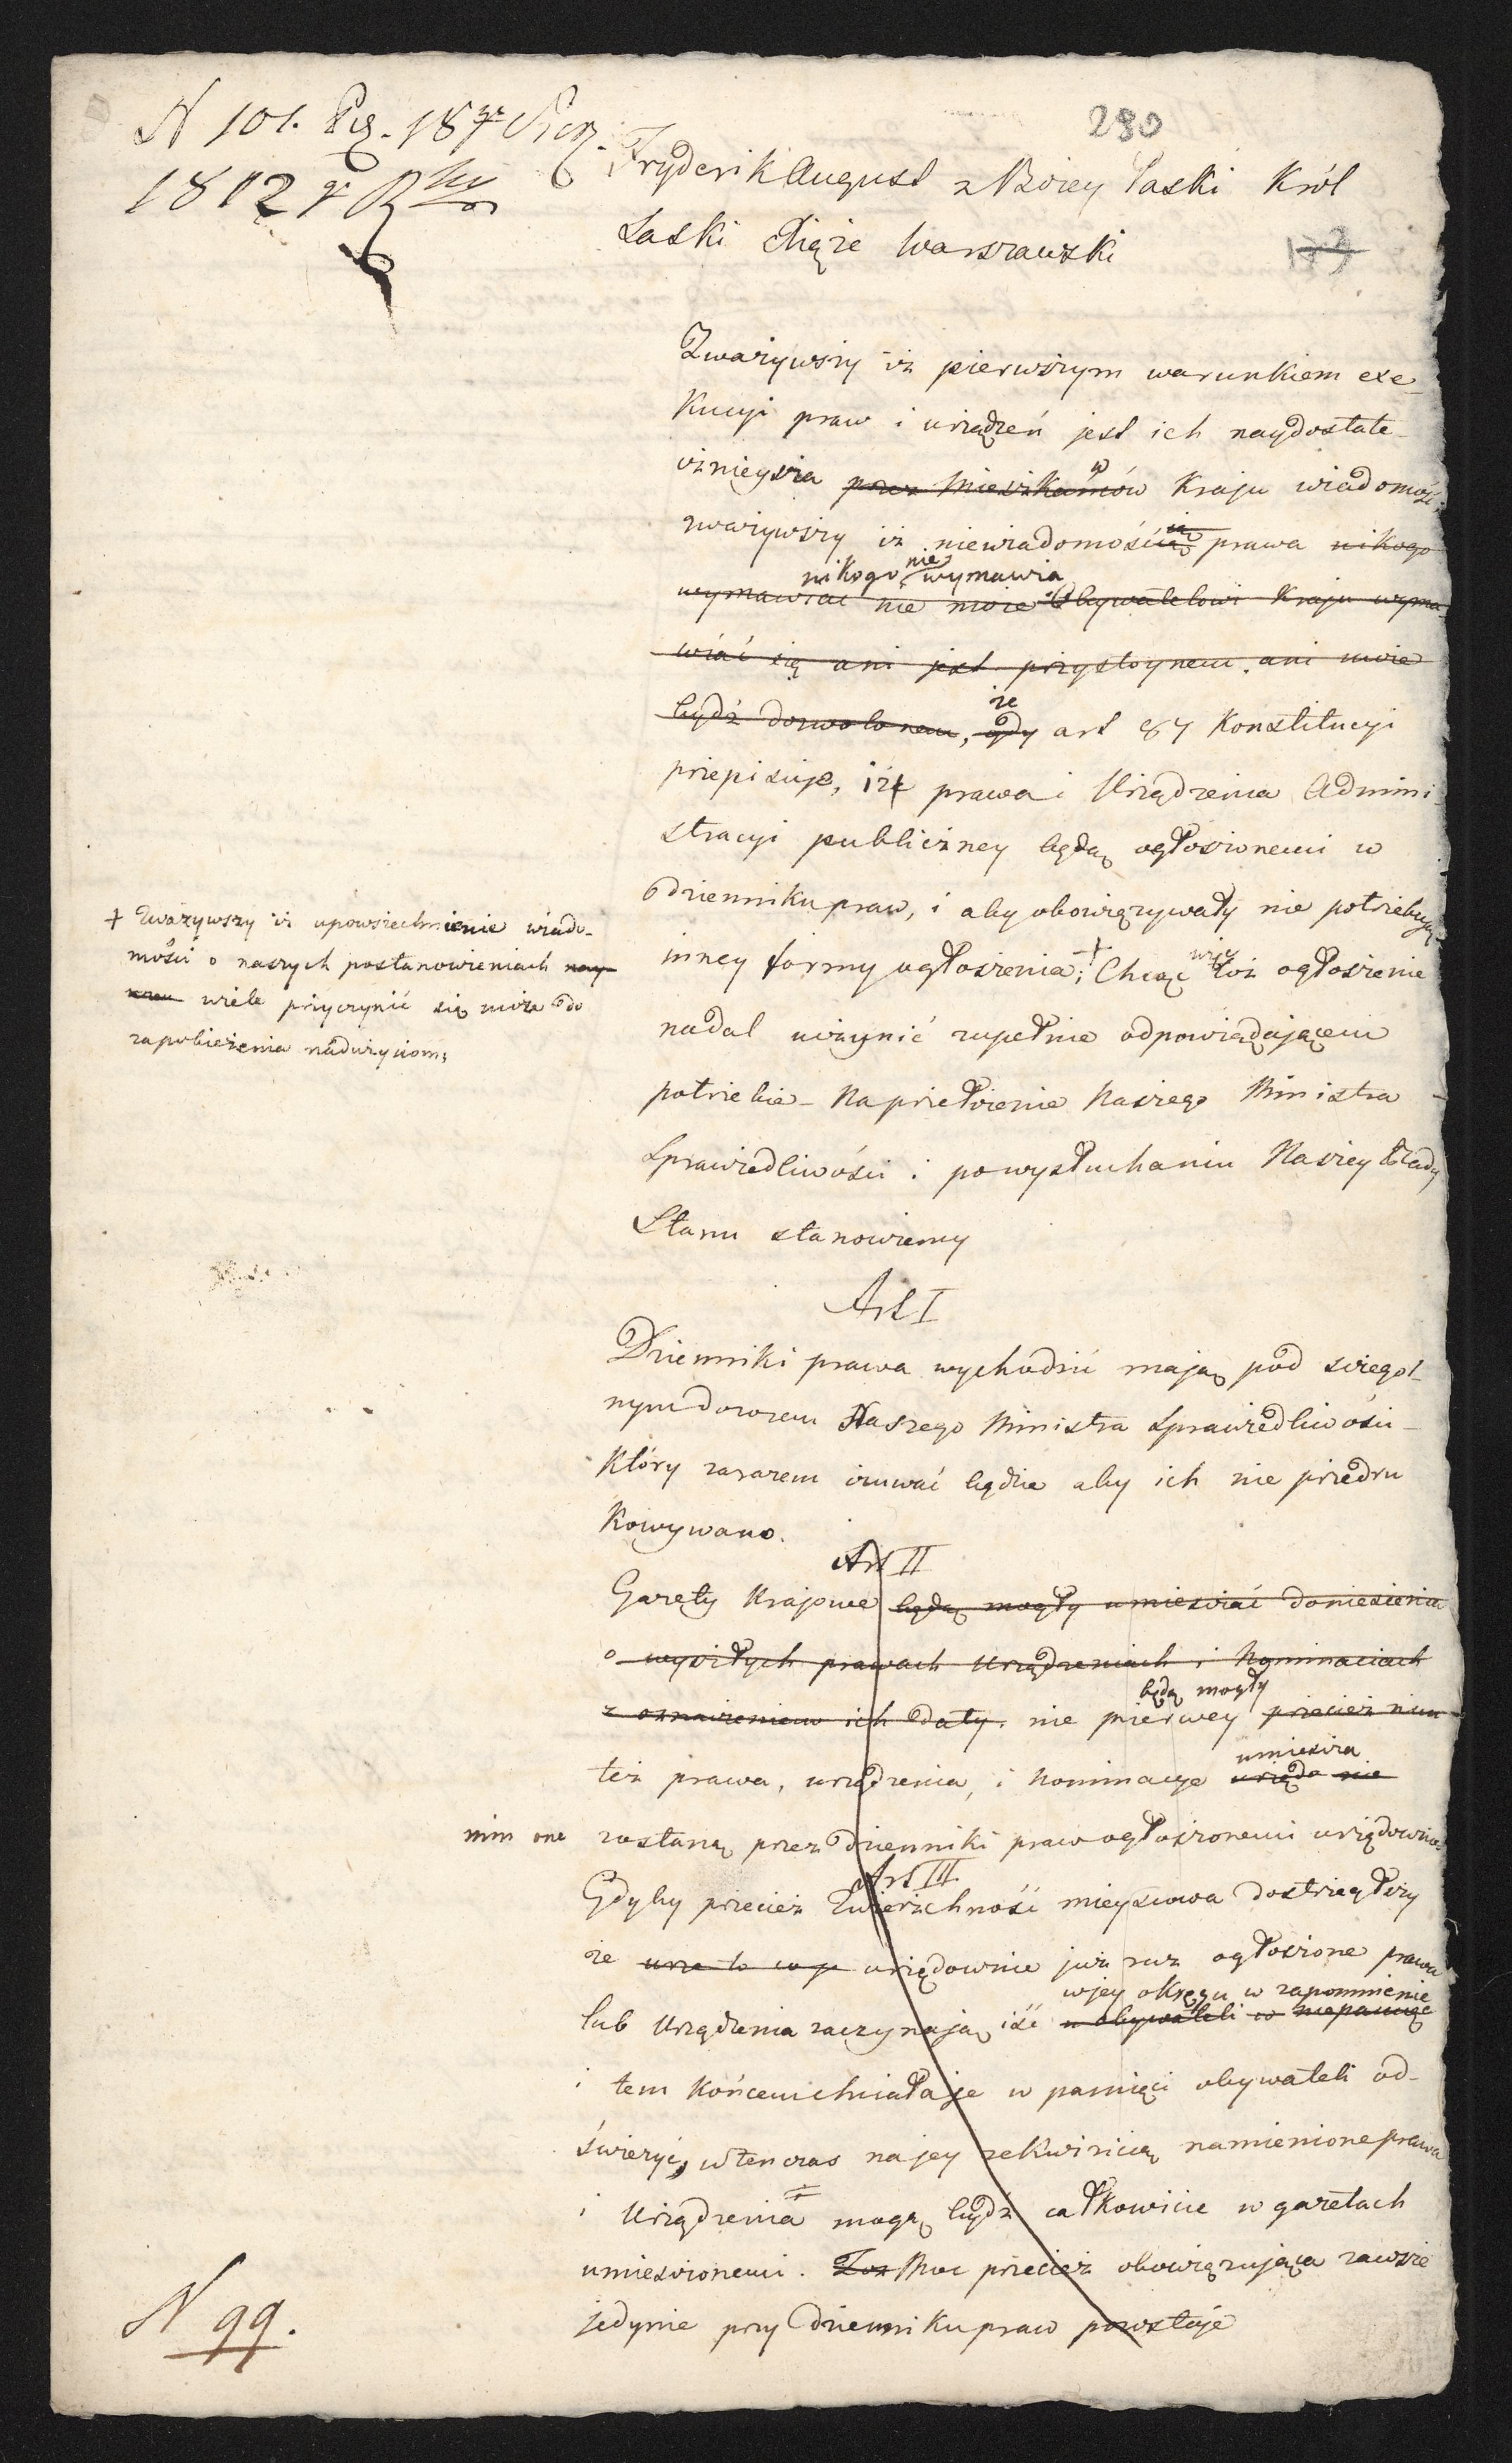 N 101. 18 Stcz.
1812 r
280
173
Fryderik August z Bożey Łaski Król
Saski Xiąże Warszawski
Zważywszy iż pierwszym warunkiem exe-
kucyi praw i urządzeń jest ich naydostate-
cznieysza przez Mieszkańców w Kraju wiadomość,
zważywszy iż niewiadomością prawa nikogo
nikogo nie wymawia
wymawiać nie może Obywatelowi Kraju wyma-
wiać się ani jest przystoynem, ani może
bydź dozwolonem, gdy że art 87 Konstitucyi
przepisuje, iż prawa i Urządzenia Admini-
stracyi publiczney będą ogłoszonemi w
dzienniku praw, i aby obowięzywały nie potrzebują
inney formy ogłoszenia; + Chcąc więc toż ogłoszenie
nadal uczynić zupełnie odpowiadającem
potrzebie - Na przełożenie Naszego Ministra
Sprawiedliwości i po wysłuchaniu Naszey Rady
Stanu stanowiemy
+ Zważywszy iż upowszechnienie wiado-
mości o naszych postanowieniach
wiele przyczynić się może do
zapobieżenia nadużyciom;
Art I
Dzienniki prawa wychodzić mają pod szczegól-
nym dozorem Naszego Ministra Sprawiedliwości -
Który zarazem czuwać będzie aby ich nie przedru
kowywano.
Art II
Gazety Krajowe będą mogły umieszczać doniesienia
o wyszłych prawach Urządzeniach i Nominaciach
z oznaczeniem ich daty. nie pierwey będą mogły przecież nim
też prawa, urządzenia, i Nominacye umieszczać
nim one zostaną przez dzienniki praw ogłoszonemi urzędownie
Art III
Gdyby przecież Zwierzchność mieyscowa dostrzegłszy
że urzędownie już raz ogłoszone prawa
w jey okręgu w zapomnienie
lub Urządzenia zaczynają iść u obywateli w niepamięć
i tem końcem chciała je w pamięci obywateli od-
świeżyć, w tenczas na jey rekwizicią namienione prawa
i Urządzenia mogą bydź całkowicie w gazetach
umieszczonemi. Moc przecież obowięzująca zawsze
jedynie przy Dzienniku praw pozostaje
N 99.